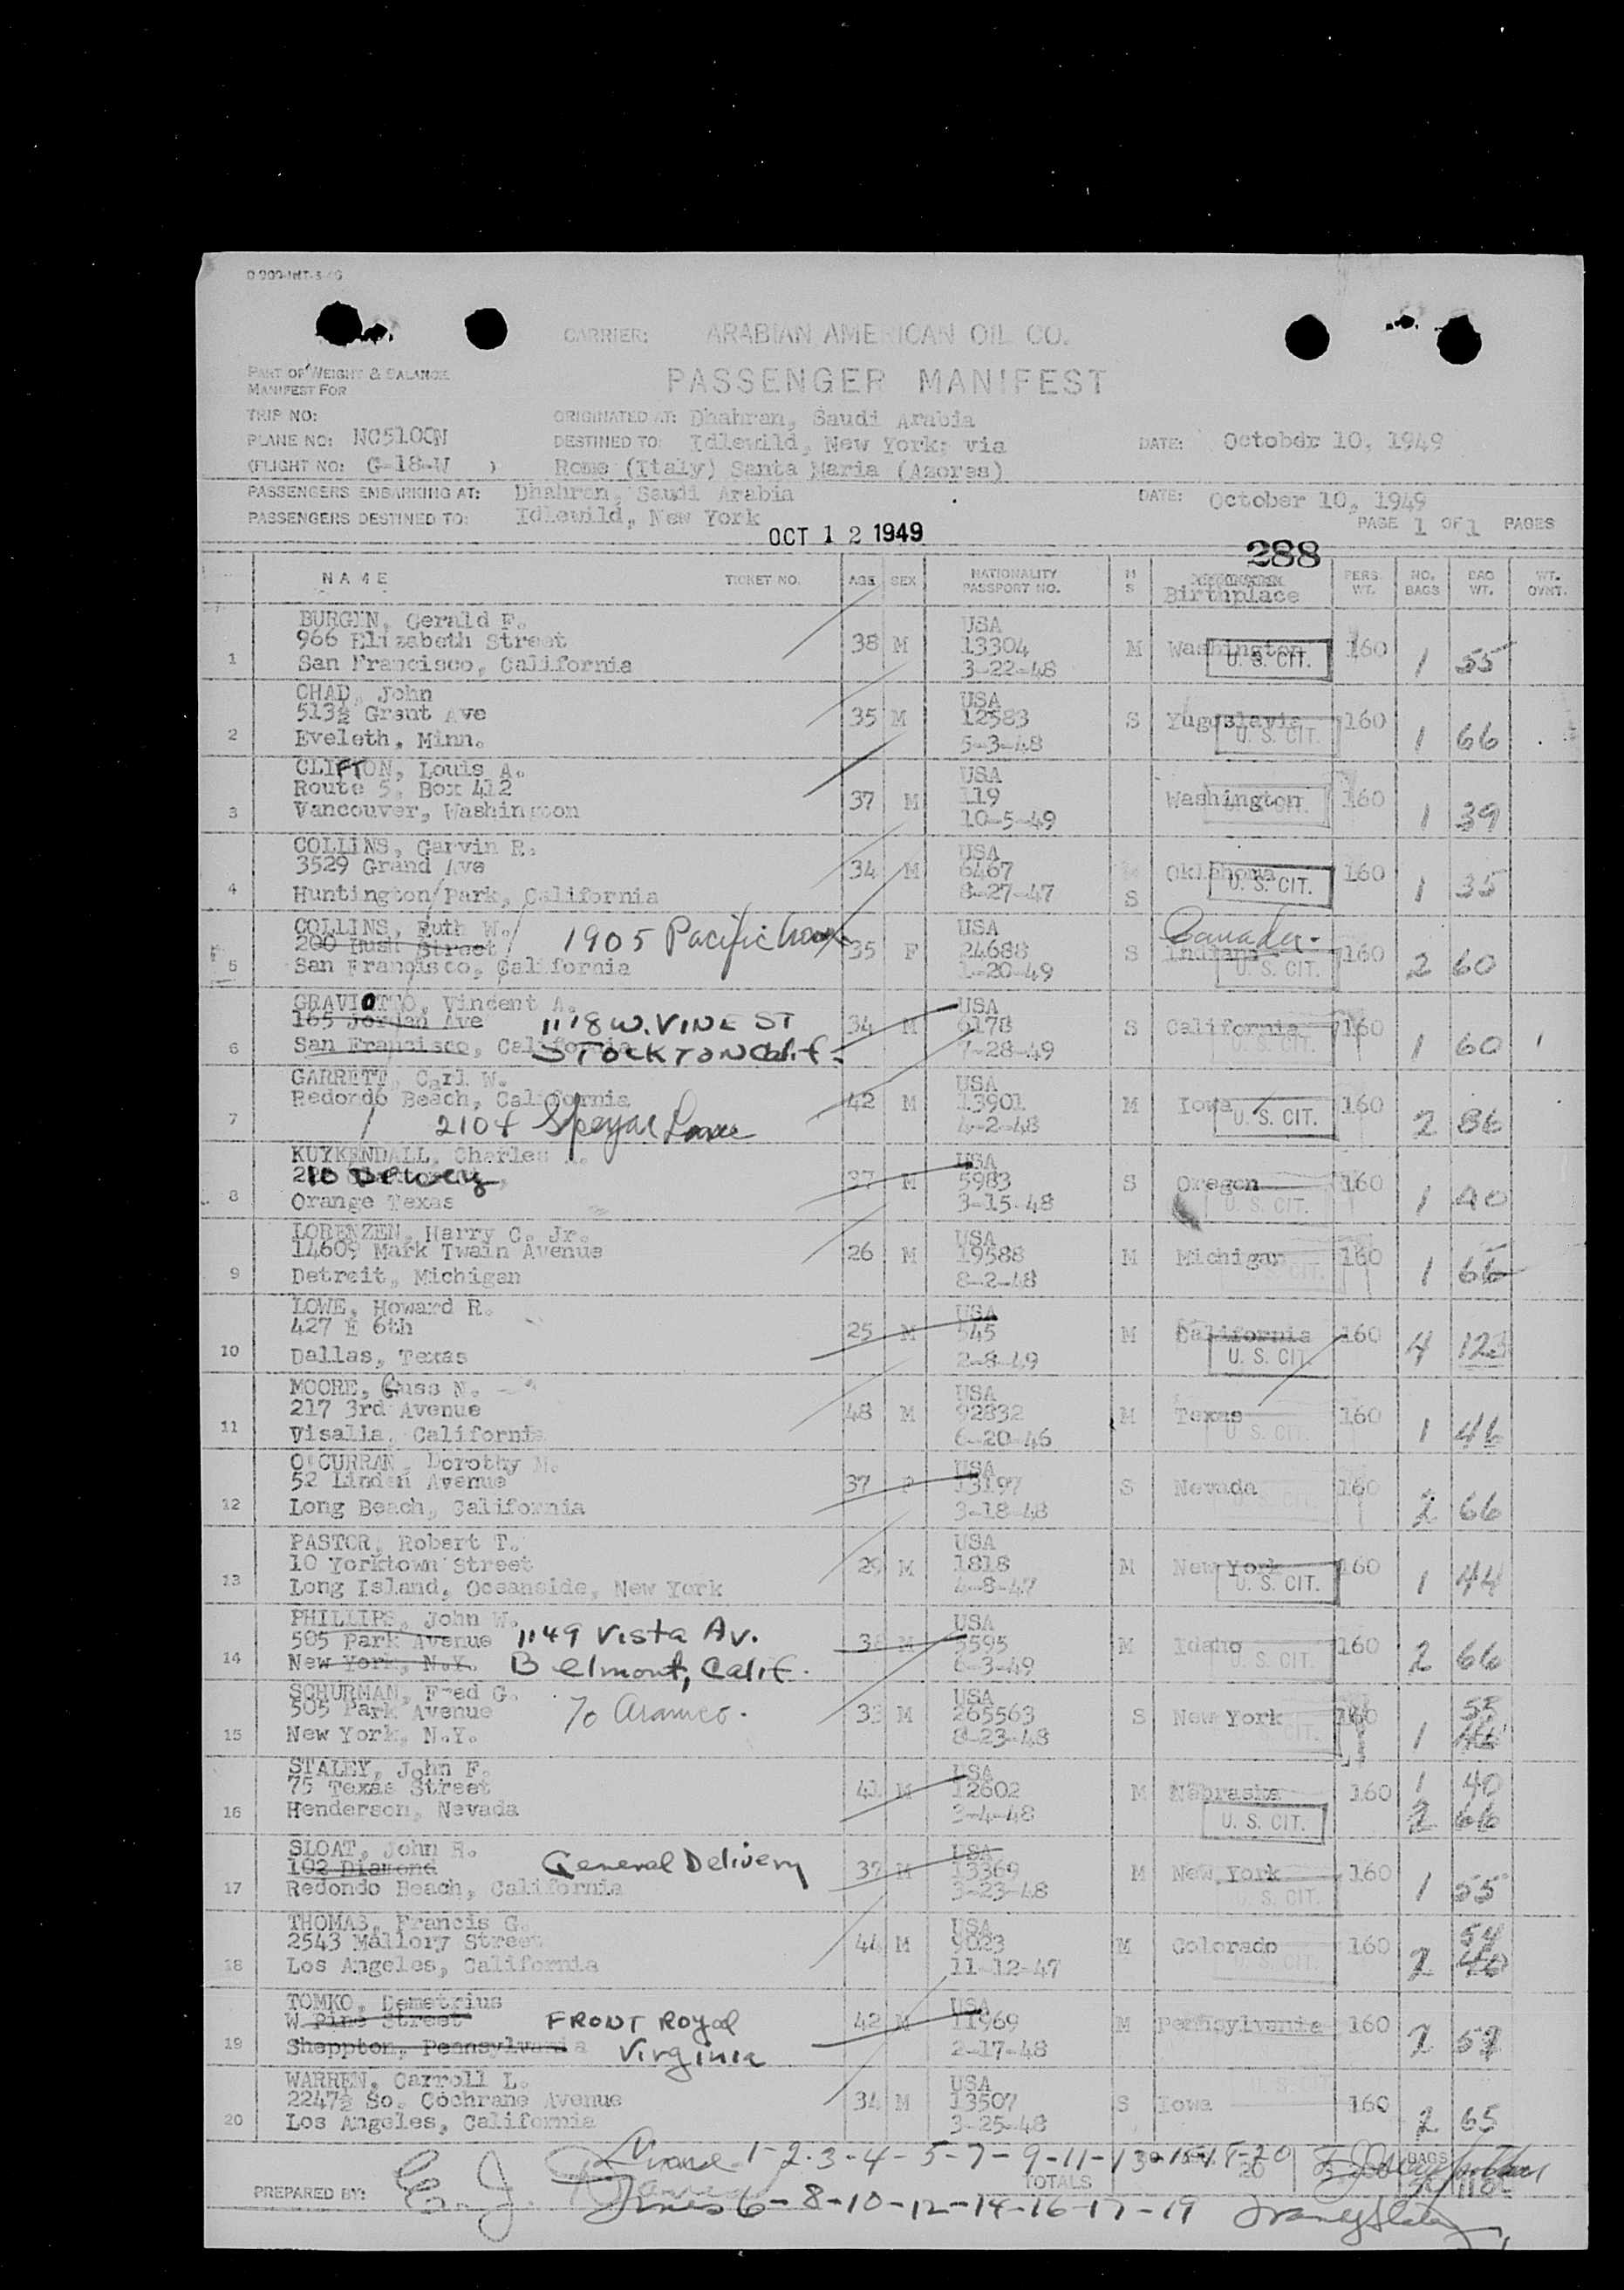 CARRIER: ARABIAN AMERICAN OIL CO.
PART OF WEIGHT & BALANCE
MANIFEST FOR
PASSENGER MANIFEST
TRIP NO:
ORIGINATED AT: Dhahran, Saudi Arabia
PLANE NO: NC5100N
DESTINED TO: Idlewild, New York; via
DATE: Octobdr 10, 1949
(FLIGHT NO: G-18-W )
Rome (Italy) Santa Maria (Azores)
PASSENGERS EMBARKING AT: Dhahran, Saudi Arabia
DATE: October 10, 1949
PASSENGERS DESTINED TO: Idlewild, New York
PAGE 1 OF 1 PAGES
OCT 12 1949
288
NAME TICKET NO. AGE SEX NATIONALITY PASSPORT NO. M S Birthplace PERS. WT. NO. BAGS BAG WT. WT. OVNT.
BURGIN, Gerald F. USA
966 Elizabeth Street 38 M 13304 M Washington 160
1 San Francisco, California 3-22-48 U. S. CIT. 1 55
CHAD, John USA
513½ Grant Ave 35 M 12583 S Yugoslavia 160
2 Eveleth, Minn. 5-3-48 U. S. CIT. 1 66
CLIFTON, Louis A. USA
Route 5, Box 412 37 M 119 Washington 160
3 Vancouver, Washington 10-5-49 CIT. 1 39
COLLINS, Garvin R. USA
3529 Grand Ave 34 M 6467 Oklahoma 160
4 Huntington Park, California 8-27-47 S U. S. CIT. 1 35
COLLINS, Ruth W. 1905 Pacific USA
200 Bush Street 35 F 24688 S Indiana 160
5 San Francisco, California 1-20-49 U. S. CIT. 2 60
GRAVIOTTO, Vincent A. USA
165 Jordan Ave 1118 W. VINE ST 34 M 6178 S California 160
6 San Francisco, California STOCKTON Calif. 7-28-49 U. S. CIT. 1 60
GARRETT, Carl W. USA
Redondo Beach, California 42 M 13901 M Iowa 160
7 Lane 4-2-48 U. S. CIT. 2 86
KUYKENDALL, Charles USA
37 M 5983 S Oregon 160
8 Orange Texas 3-15-48 U. S. CIT. 1 40
LORENZEN, Harry C. Jr. USA
14609 Mark Twain Avenue 26 M 19588 M Michigan 160
9 Detroit, Michigan 8-2-48 CIT. 1 66
LOWE, Howard R. USA
427 E 6th 25 M 545 M California 160
10 Dallas, Texas 2-8-49 U. S. CIT. 4 123
MOORE, Guss N. USA
217 3rd Avenue 48 M 92832 M Texas 160
11 Visalia, California 6-20-46 U. S. CIT. 1 46
O'CURRAN, Dorothy M. USA
52 Linden Avenue 37 F 13197 S Nevada 160
12 Long Beach, California 3-18-48 U. S. CIT. 2 66
PASTOR, Robert T. USA
10 Yorktown Street 29 M 1818 M New York 160
13 Long Island, Oceanside, New York 4-8-47 U. S. CIT. 1 44
PHILLIPS, John W. USA
505 Park Avenue 1149 Vista Av. 38 M 5595 M Idaho 160
14 New York, N.Y. Belmont, Calif. 6-3-49 U. S. CIT. 2 66
SCHURMAN, Fred G. USA
505 Park Avenue % Aramco. 33 M 265563 S New York 160 55
15 New York, N.Y. 8-23-48 CIT. 1
STALEY, John F. USA
75 Texas Street 41 M 12602 M Nebraska 160 1 40
16 Henderson, Nevada 3-4-48 U. S. CIT. 2 66
SLOAT, John R. USA
102 Diamond General Delivery 37 M 13369 M New York 160
17 Redondo Beach, California 3-23-48 U. S. CIT. 1 55
THOMAS, Francis G. USA
2543 Mallory Street 44 M 9023 M Colorado 160 54
18 Los Angeles, California 11-12-47 U. S. CIT. 2 40
TOMKO, Demetrius USA
W Pine Street FRONT Royal 42 M 11969 M Pennsylvania 160
19 Sheppton, Pennsylvania Virginia 2-17-48 2
WARREN, Carroll L. USA
2247½ So. Cochrane Avenue 34 M 13507 S Iowa 160
20 Los Angeles, California 3-25-48 2 65
1-2-3-4-5-7-9-11-13-15-18-20
20 BAGS
PREPARED BY: E. J. TOTALS
6-8-10-12-14-16-17-19